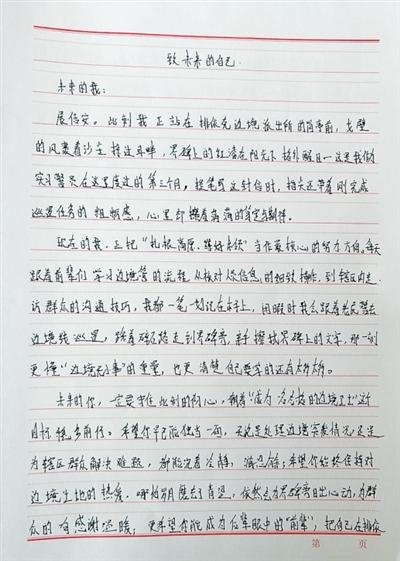 致未来的自己
未来的我：
展信安。此刻我正站在排依克边境派出所的岗亭前，戈壁
的风裹着沙尘掠过耳畔，界碑上的红漆在阳光下格外醒目—这是我做
实习警员在这里度过的第三个月。提笔写这封信时，指尖还带着刚完成
巡逻任务的粗糙感，心里却揣着满满的笃定与期待。
现在的我，正把“扎根高原、 当作最核心的努力方向。每天
跟着前辈们学习边境管控的流程，从核对 信息的细致操作，到辖区内走
访群众的沟通技巧，我都一笔一划记在本子上，闲暇时我会跟着老民警去
边境线巡逻，踏着碎石路走到界碑旁，亲手擦拭界碑上的文字，那一刻
更懂“边境无小事”的重量，也更清楚自己要学的还有太多太多。
未来的你，一定要守住此刻的初心，朝着“成为合格的边境卫士”这个
目标稳步前行。希望你早已能独当一面，无论是处理边境突发情况，还是
为辖区群众解决难题，都能沉着冷静、 ；希望你始终保持对
边境土地的热爱，哪怕岁月磨去了青涩，依然会为界碑旁日出心动，为群
众的一句感谢温暖；更希望你能成为后辈眼中的“前辈”，把自己在排依
第 页